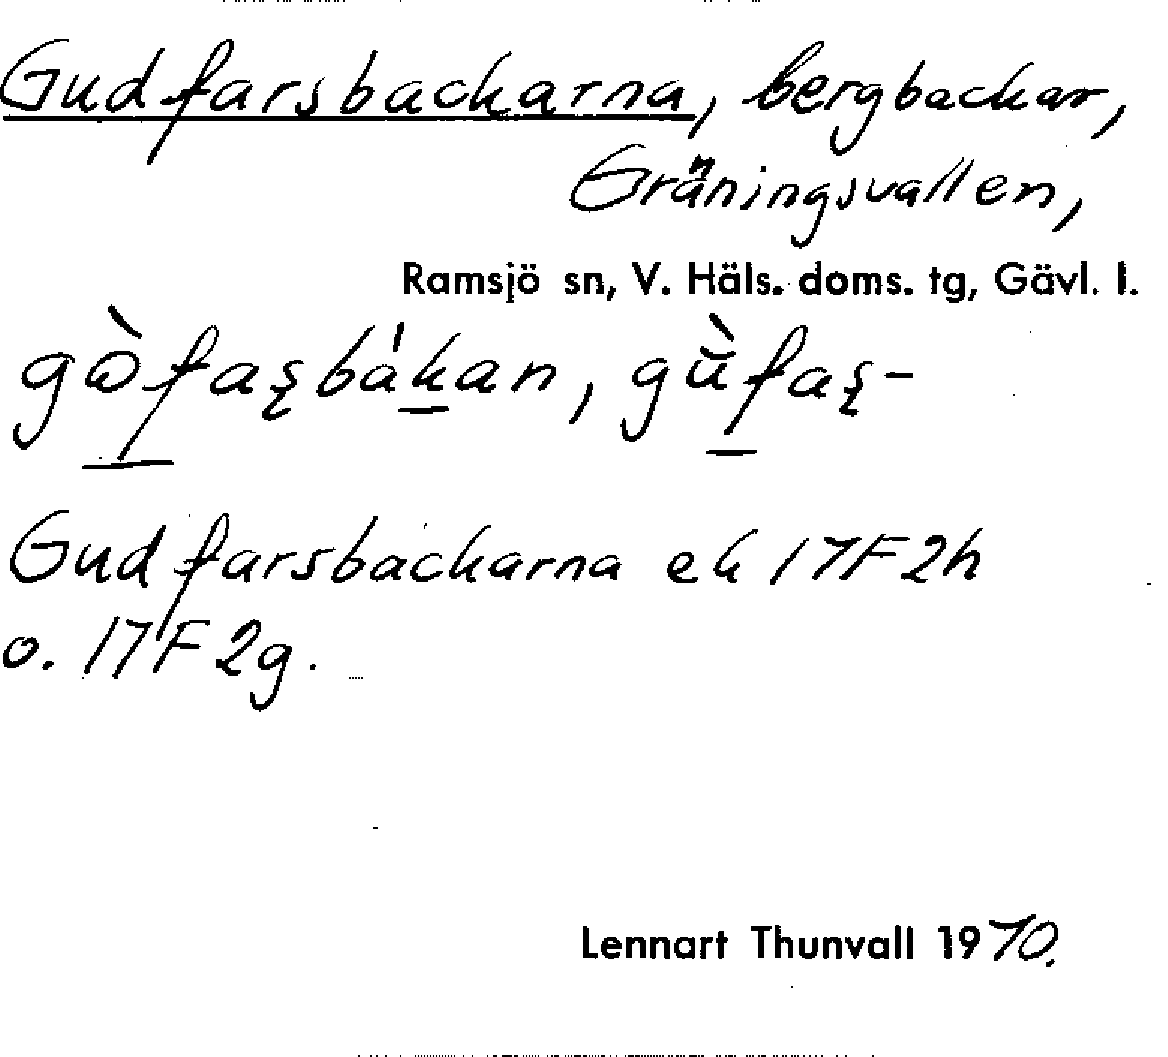 Gudfarsbackarna, bergbackar,
Gräningsvallen,
Ramsjö sn, V. Häls. doms. tg, Gävl. l.
gɷ̀fas̨bákan, gùfas̨-
Gudfarsbackarna ek 17F2h
o. 17F2g.
Lennart Thunvall 1970.